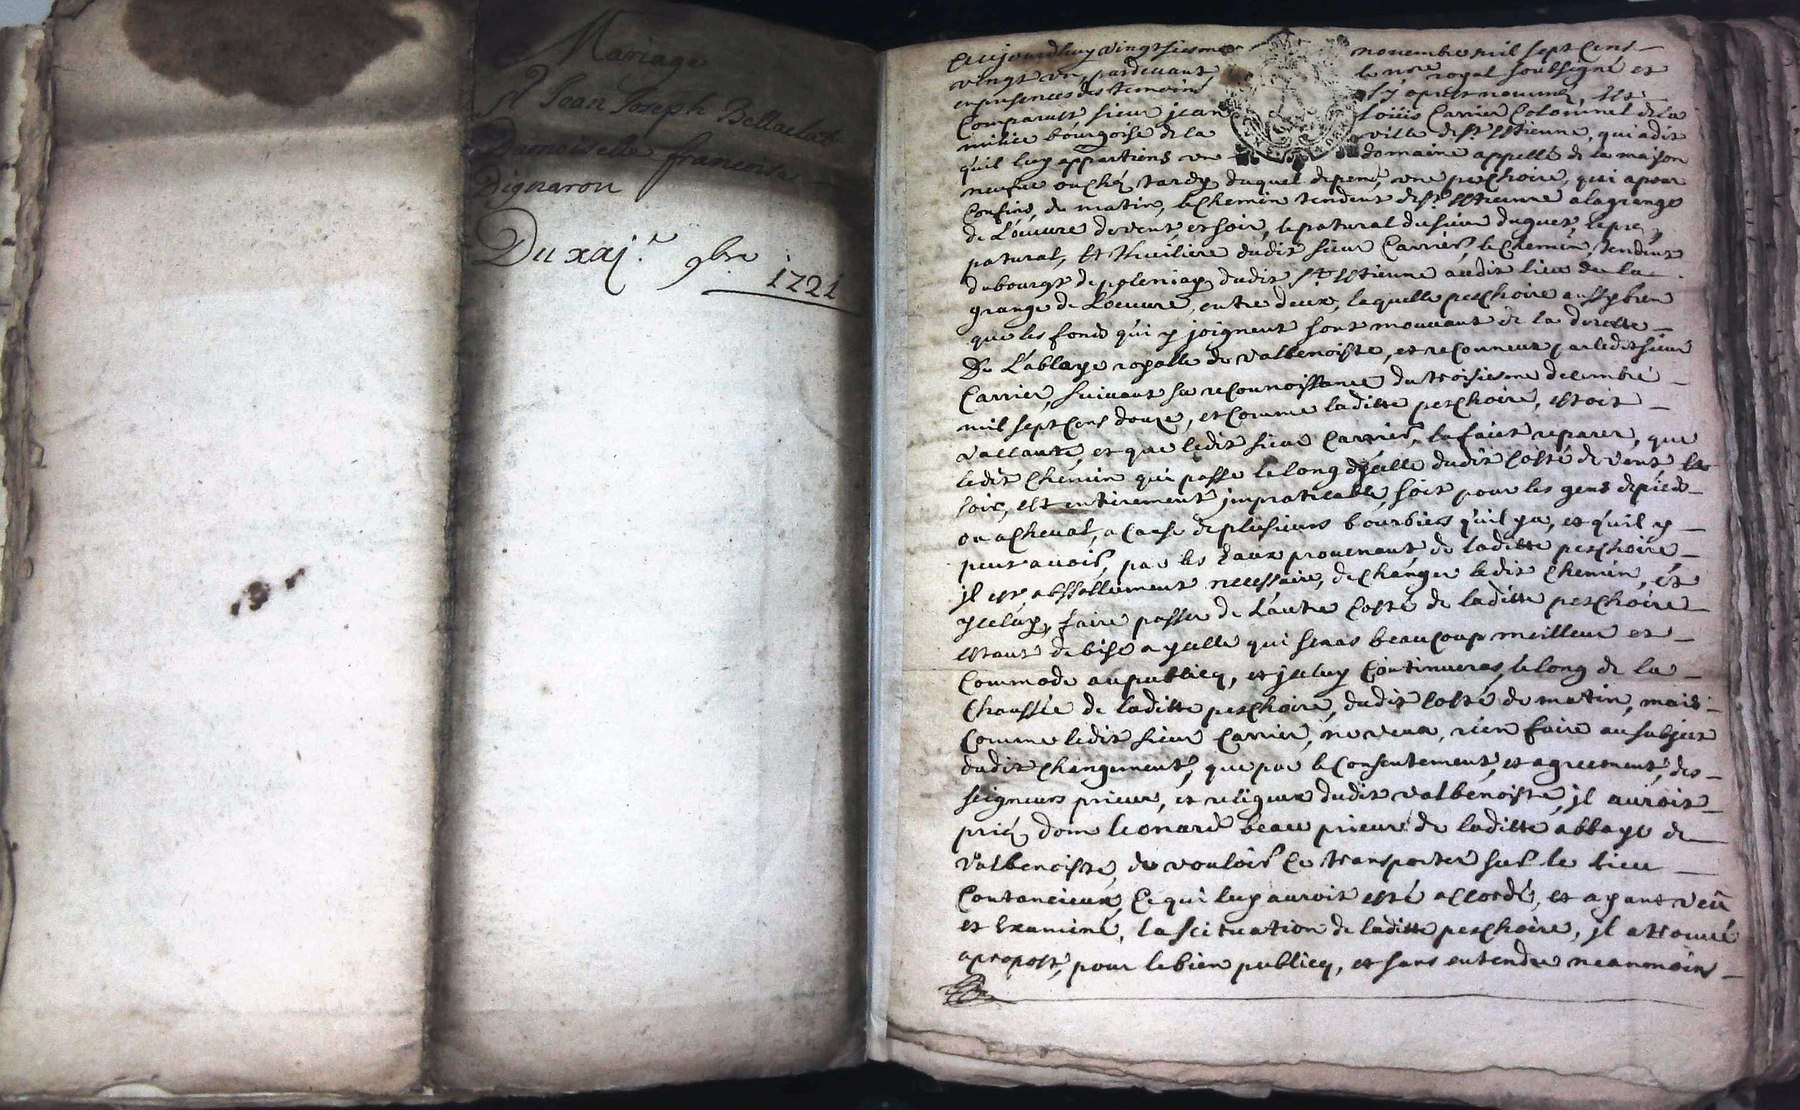 Mariage
Sr Jean Joseph Bellaclat
Damoiselle francoise
Dignaron
Du xxj.e 9bre
1721
Aujourdhuy vingtsiesme novembre mil sept cens
vingt un, pardevant le nore royal soubsigné et
en presences des temoins cy apres nommés, est
Comparut sieur jean Louis Carrier Colonnel de la
milice bourgoise de la ville de st Estienne, qui a dit
qu'il luy appartiens un domaine appellé de la maison
neufve ou chés tardy duquel depend, une peschoire, qui a pour
Confins, de matin, le chemin tendent de st Estienne a la grange
de L'oeuvre de vent et soir, le patural du sieur duguet, le pré,
patural, et dudit sieur Carrier, le chemin, tendent
du bourgt de dudit st Estienne audit lieu de la
grange de Loeuvre, entre deux, laquelle peschoire aussy bien
que les fonds qui y joignent sont mouvant de la directte
De L'abbaye royalle de valbenoiste, et reconneux par ledit sieur
Carrier, suivant sa reconnoissance du troisiesme decembre
mil sept cens douze, et comme laditte peschoire, estoit
vaccante, et que ledit sieur Carrier, la faict reparer, que
ledit chemin qui passe le long d'jcelle dudit costé de vent et
soir, est entierement jmpraticable, soit pour les gens de pied
ou a cheval, a cause de plusieurs bourbiers qu'il y a, et qu'il y
peut avoir, par les eaux provenant de laditte peschoire
jl est absollument necessaire, de changer ledit chemin, et
jceluy, faire passer de L'autre costé de laditte peschoire
estant de bise a jcelle qui seras beaucoup meilleur et
commode au publicq, et jceluy continueras, le long de la
chaussée de laditte peschoire, dudit costé de matin, mais
comme ledit sieur Carrier, ne veux, rien faire au subject
dudit changement, que par le consentement, et agreement, des
seigneurs prieur, et religieux dudit valbenoiste, jl auroit
prié dom Leonard beau prieur de laditte abbaye de
valbenoiste, de vouloir ce transporter sur le lieu
contancieux, ce qui luy auroit esté accordé, et ayant veü
et Examiné, la scituation de laditte peschoire, jl a trouvé
apropost, pour le bien publicq, et sans entendre neanmoins